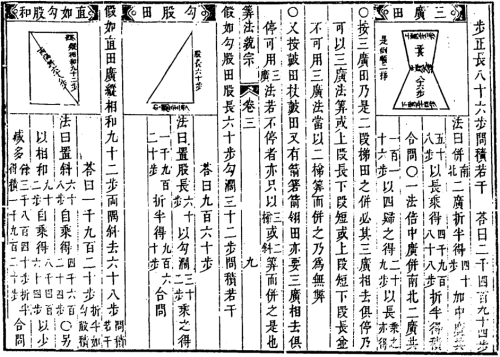 三廣田
步正長八十六步問積若干 答曰二千四百九十四步
法曰併南北二廣折半得四十步加中廣共
五十八步以長乘得四千九百八十八步折半得積
合問○一法倍中廣併南北二廣共
一百一十六步以四歸之得二十九步以長乘之
○又按三廣田乃是二段梯田之併必其三廣相去俱停乃
可以三廣法算或上段長下段短或上段短下段長全
不可用三廣法當以二梯算而併之乃為無弊
○又按鼓田杖鼓田又有箭筈箭翎田亦要三廣相去俱
停可用三廣法若不停者亦只以梯或斜算而併之是也
算法統宗 卷三 九
假如勾股田股長六十步勾濶三十二步問積若干
勾股田
股長六十步
答曰九百六十步
法曰置股長六十步以勾濶三十二步乘之得
一千九百二十步折半得積合問
假如直田廣縱相和九十二步兩隅斜去六十八步問積若干
直如勾股和
答曰一千九百二十步
法曰置斜六十八步自乘得四千六百二十四步○另
以相和九十二步自乘得八千四百六十四步以少
減多餘三千八百四十步折半合問